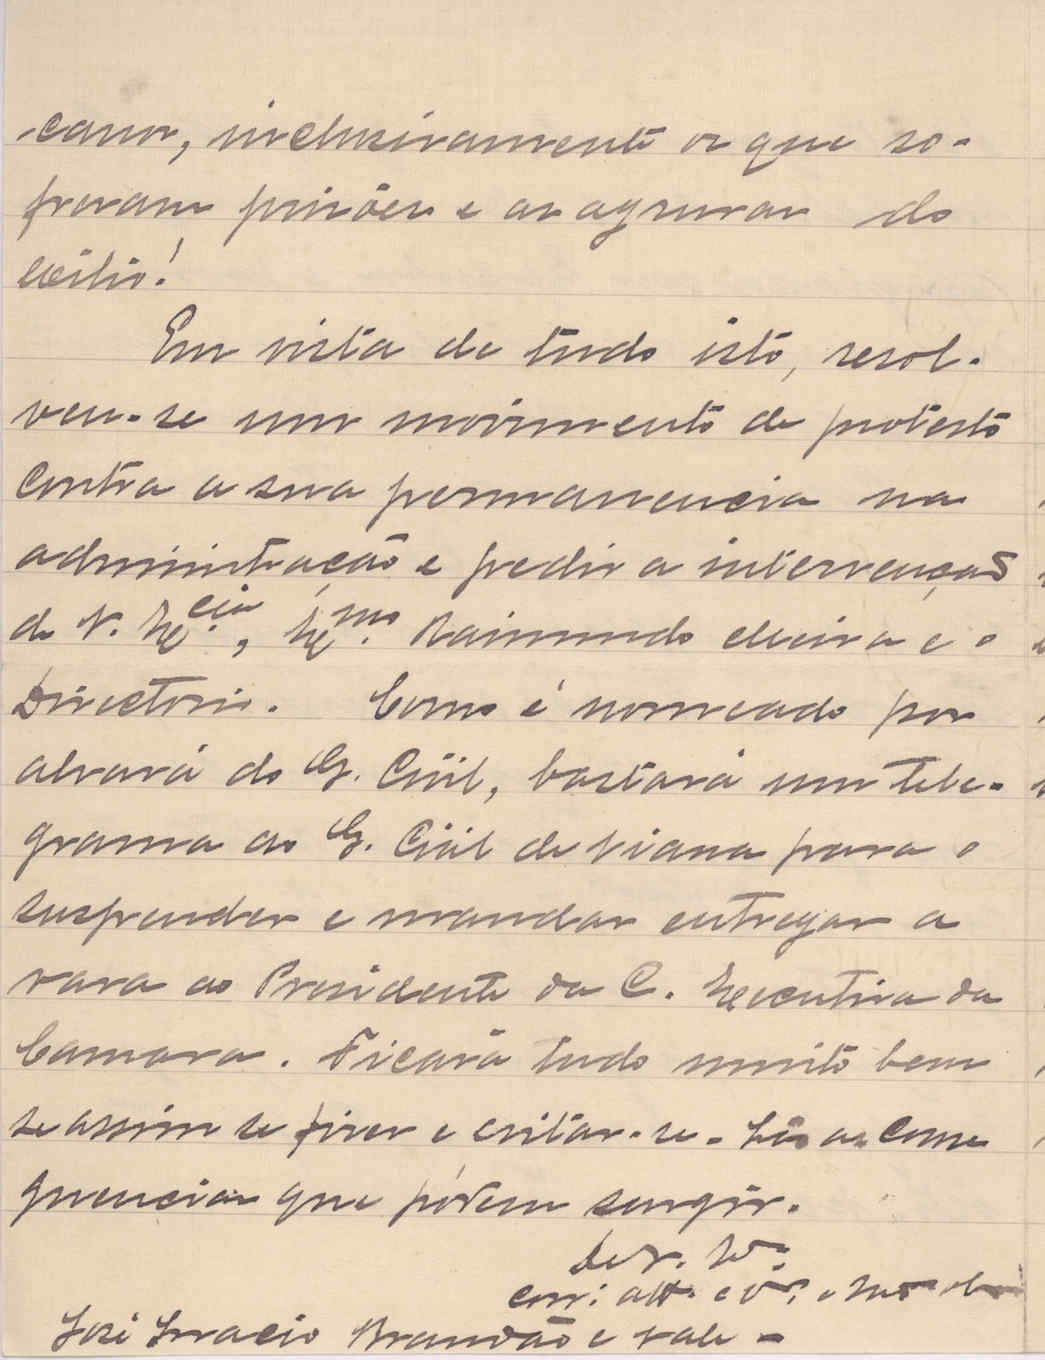 canos, inclusivamente os que so-
freram prisões e as agruras do
exilio!
Em vista de tudo isto, resol-
veu-se um movimento de protesto
contra a sua permanencia na
administração e pedir a intervenção
de V. Ex.cia, Ex.mo Raimundo Meira e o
Directorio. Como é nomeado por
alvará do G. Civil, bastará um tele-
grama ao G. Civil de Viana para o
suspender e mandar entregar a
vara ao Presidente da C. Executiva da
Camara. Ficará tudo muito bem
se assim se fizer e evitar-se-hão as conse
quencias que pódem surgir.
De V. Ex.ª
corr. att.
José Ignacio Brandão e Vale -